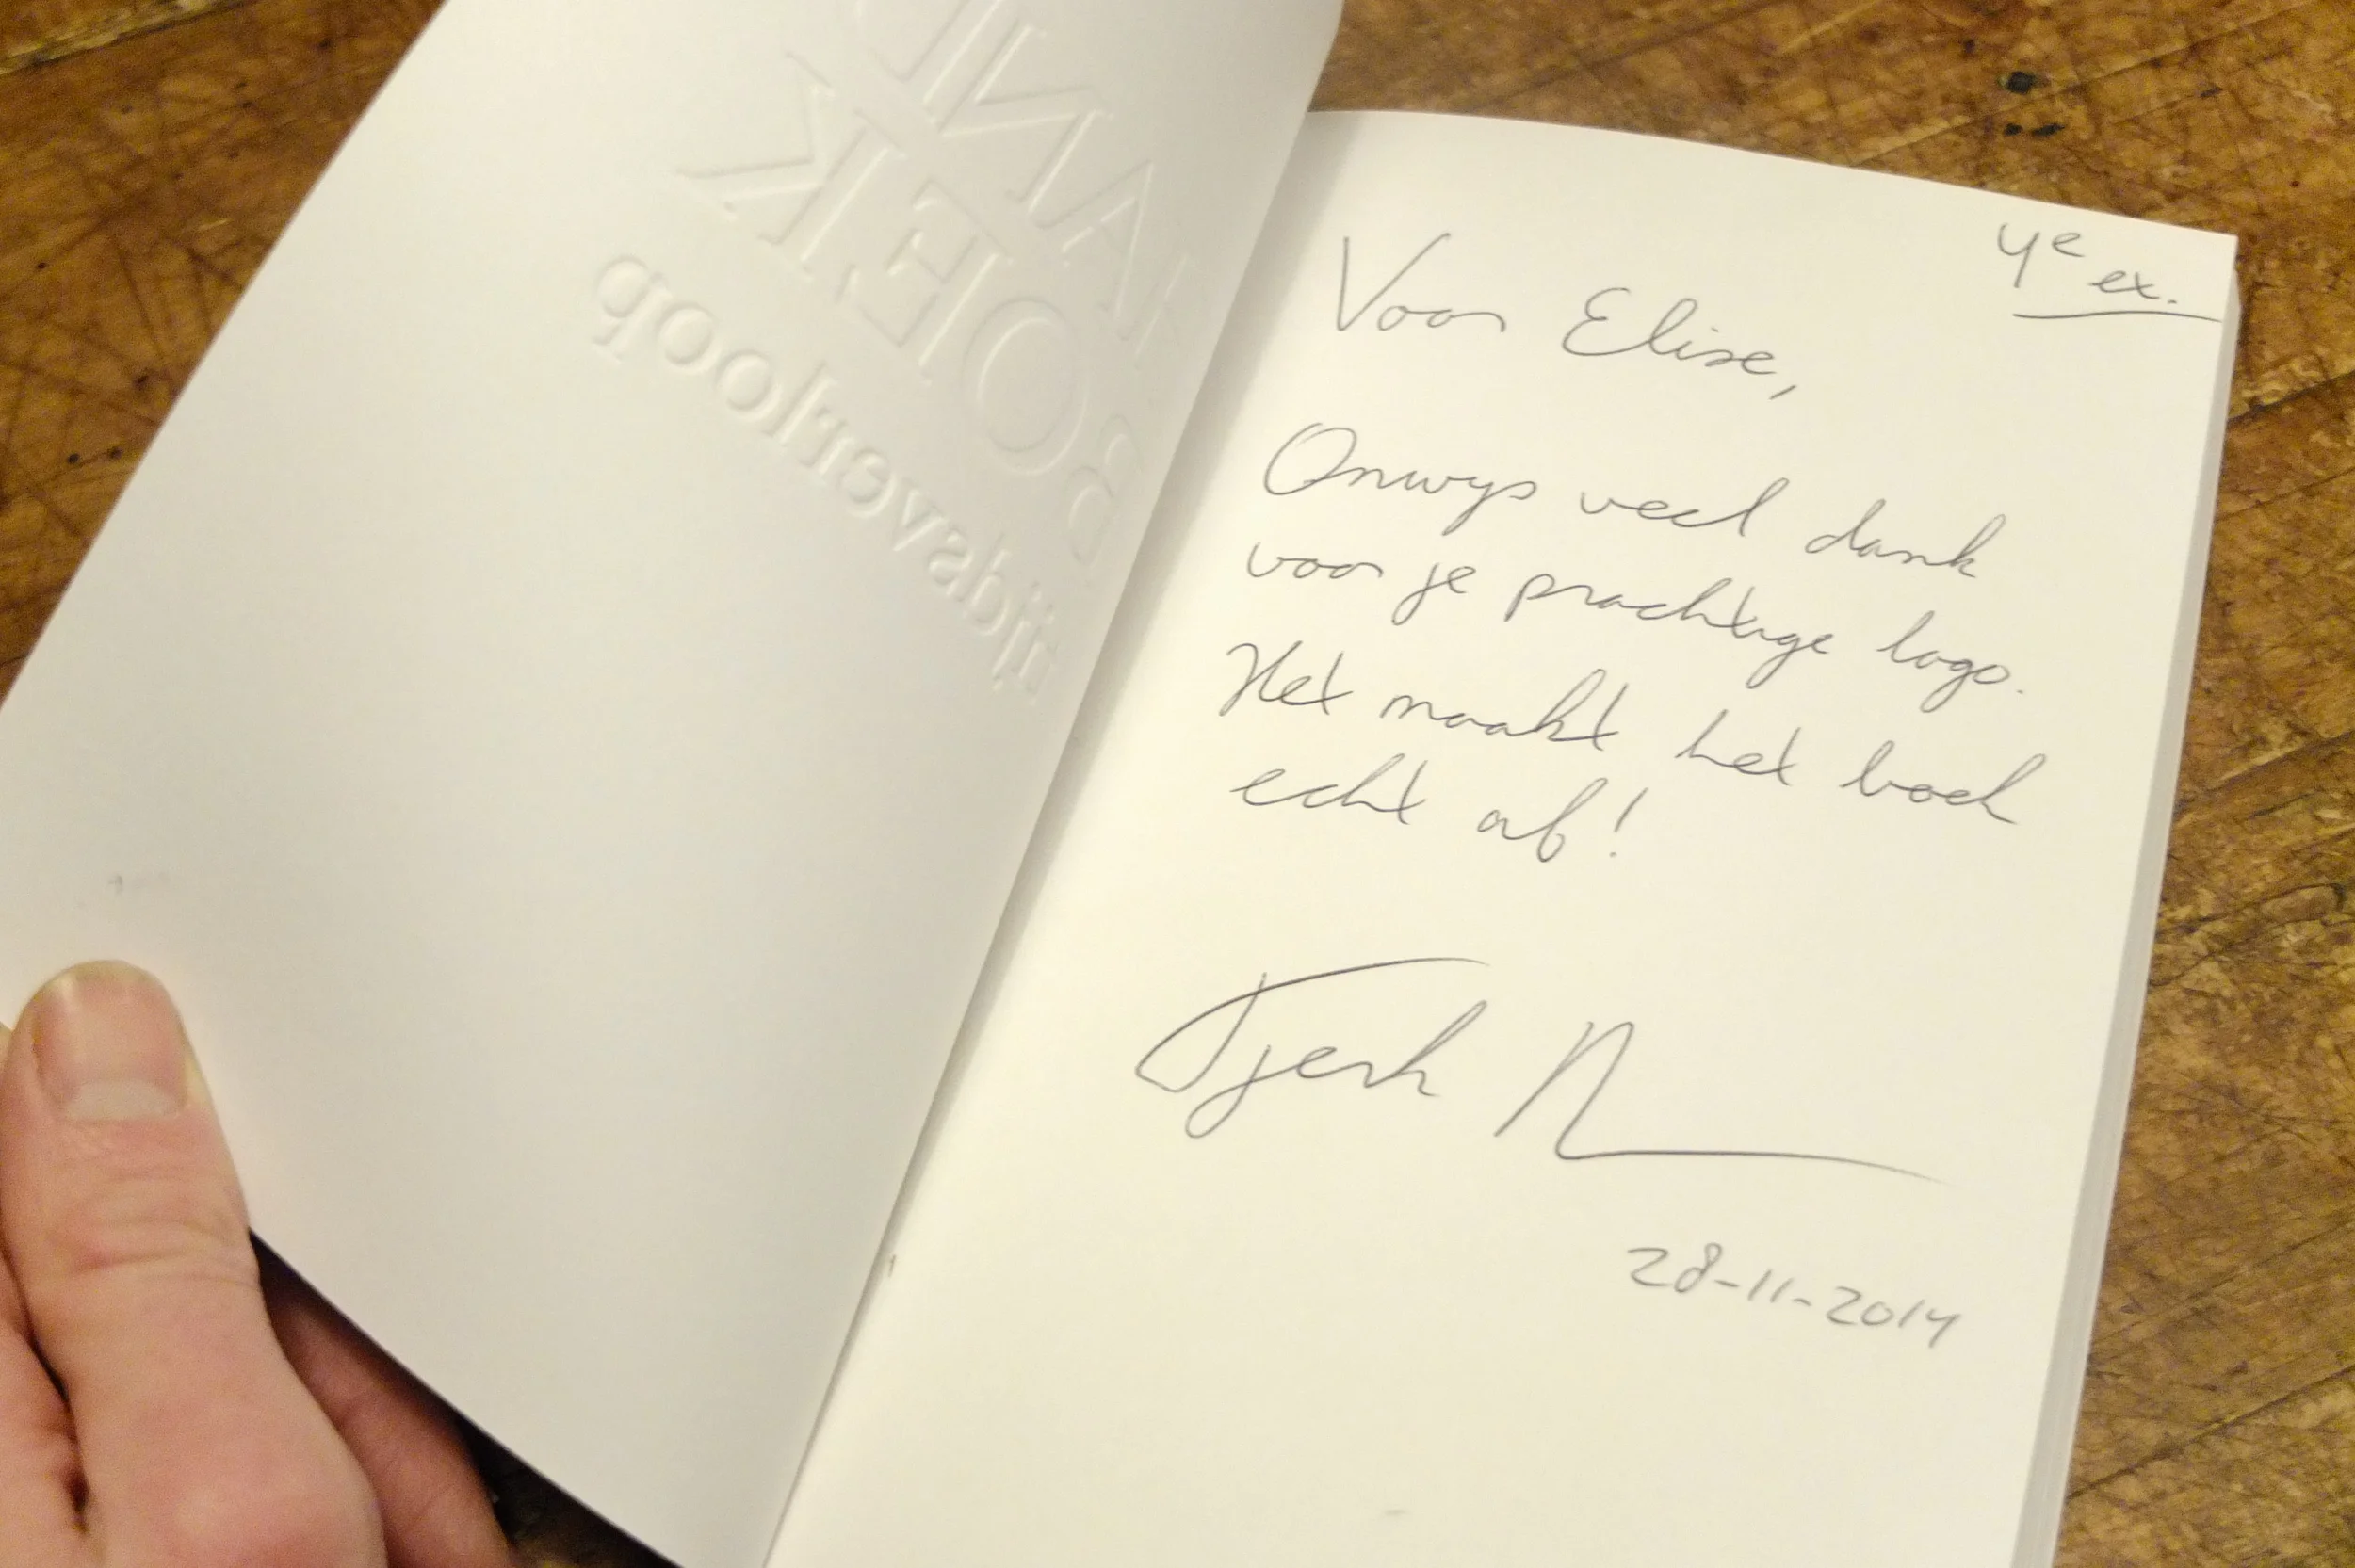 HAND
BOEK
tijdsverloop
4e ex.
Voor Elise,
Onwijs veel dank
voor je prachtige logo.
Het maakt het boek
echt af!
Tjerk
28-11-2014